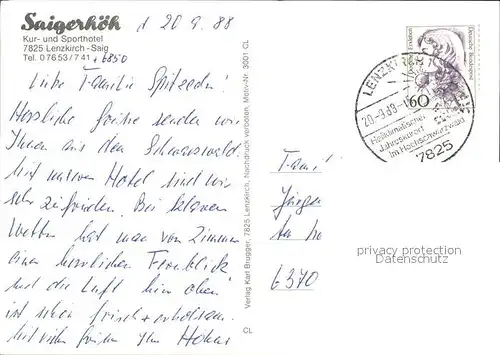 Saigerhöh
Kur- und Sporthotel
7825 Lenzkirch-Saig
Tel. 0 76 53 / 7 41 + 6850
d 20 9. 88
Liebe Familie
Herzliche Grüße senden wir
Ihnen aus dem Schwarzwald.
Mit unserem Hotel sind wir
sehr zufrieden. Bei klarem
Wetter hat man vom Zimmer
einen herrlichen Fernblick
und die Luft hier oben
ist schön frisch + erholsam.
Mit vielen Grüßen Ihre
Verlag Karl Brugger, 7825 Lenzkirch, Nachdruck verboten, Motiv-Nr. 3001 CL
CL
Dorothea Erxleben
Deutsche Bundespost
60
LENZKIRCH
20-9.88
Heilklimatischer
Jahreskurort
im Hochschwarzwald
7825
Fami
6370
privacy protection
Datenschutz